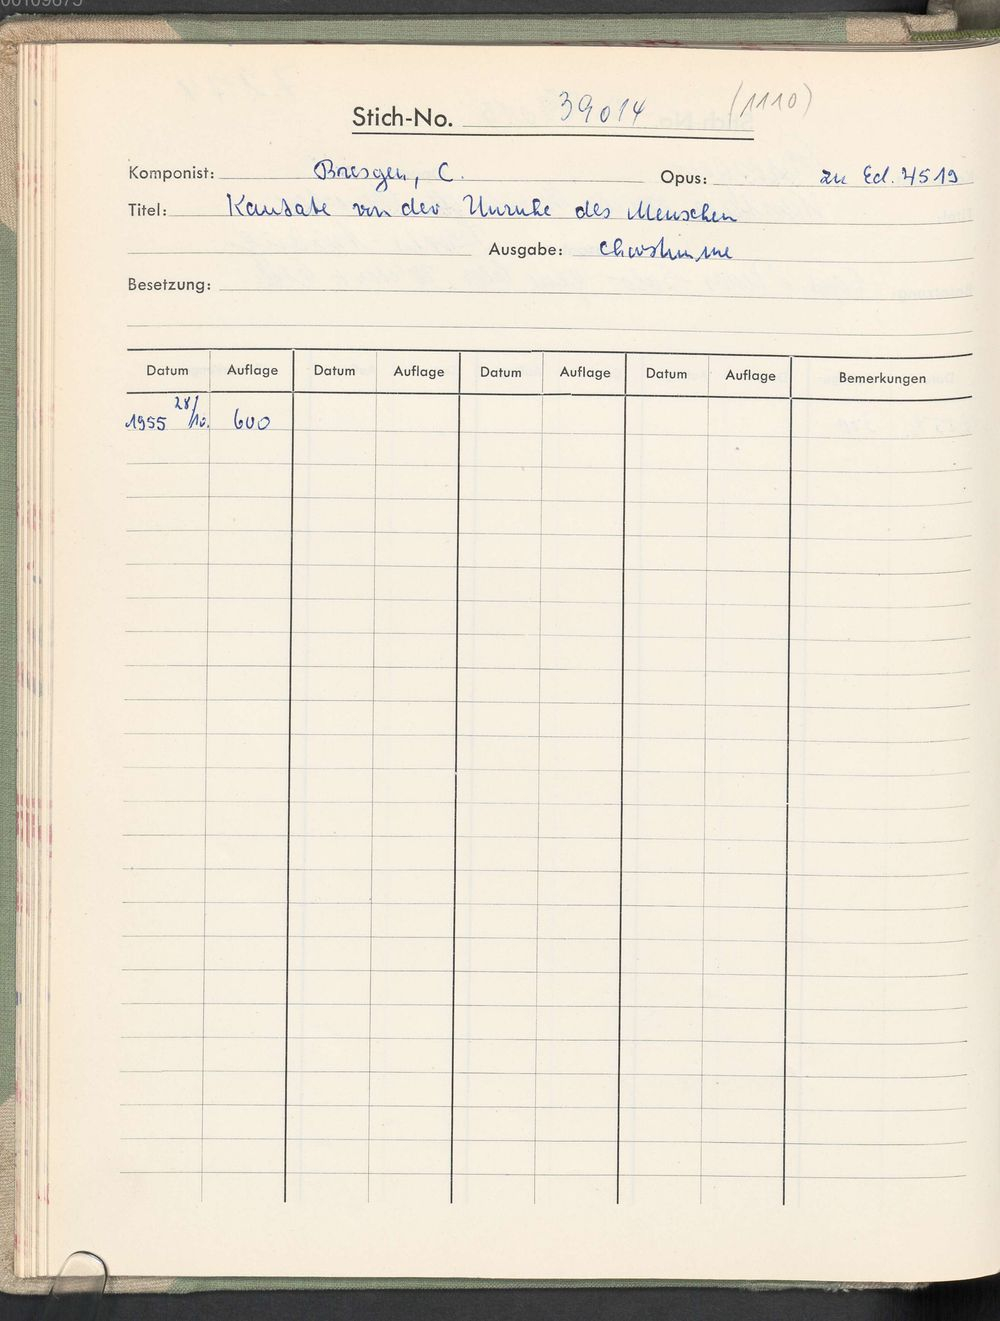 Stich-No. 39014 (1110)
Komponist: Bresgen, C. Opus: zu Ed. 4519
Titel: Kantate von der Unruhe des Menschen
Ausgabe: Chorstimme
Besetzung:
Datum Auflage Datum Auflage Datum Auflage Datum Auflage Bemerkungen
1955 28/10. 600